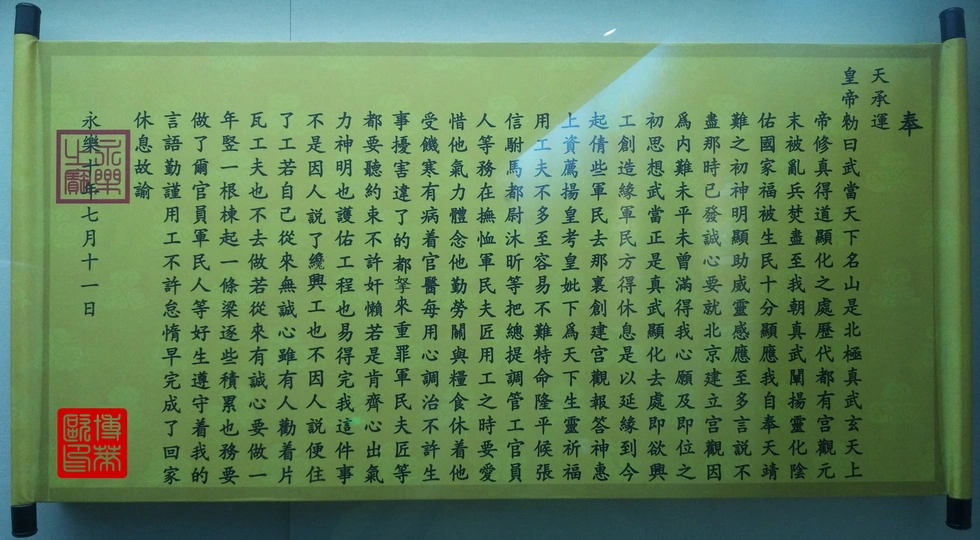 奉
天承運
皇帝勅曰武當天下名山是北極真武玄天上
帝修真得道顯化之處歷代都有宫觀元
末被亂兵焚盡至我朝真武闡揚靈化陰
佑國家福被生民十分顯應我自奉天靖
難之初神明顯助威靈感應至多言說不
盡那時已發誠心要就北京建立宫觀因
為内難未平未曾滿得我心願及即位之
初思想武當正是真武顯化去處即欲興
工創造緣軍民方得休息是以延緣到今
起倩些軍民去那裏創建宫觀報答神惠
上資薦揚皇考皇妣下爲天下生靈祈福
用工夫不多至容易不難特命隆平候張
信駙馬都尉沐昕等把總提調管工官員
人等務在撫恤軍民夫匠用工之時要愛
惜他氣力體念他勤勞關與糧食休着他
受饑寒有病着官醫每用心調治不許生
事擾害違了的都拏來重罪軍民夫匠等
都要聽約束不許奸懶若是肯齊心出氣
力神明也護佑工程也易得完我這件事
不是因人說了纔興工也不因人說便住
了工若自己從來無誠心雖有人勸着片
瓦工夫也不去做若從來有誠心要做一
年堅一根棟起一條梁逐些積累也務要
做了爾官員軍民人等好生遵守着我的
言語勤謹用工不許怠惰早完成了回家
休息故諭
永樂十年七月十一日
永樂之寶
博萊歐印